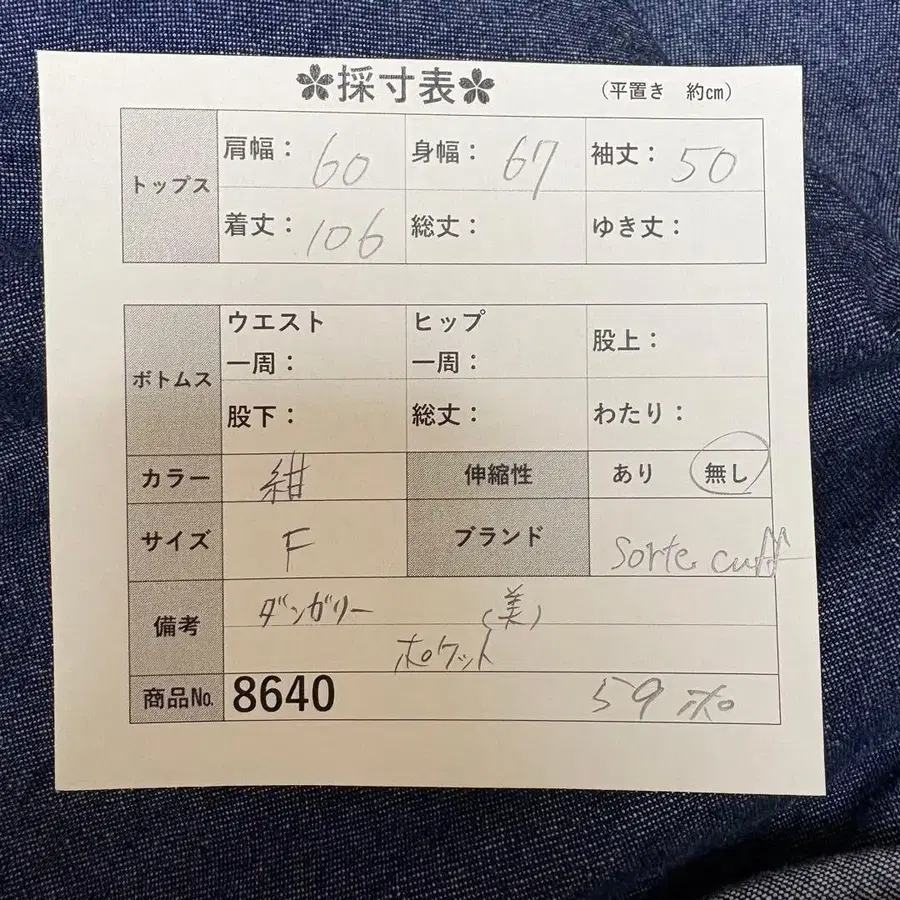 採寸表
(平置き 約cm)
トップス 肩幅: 60 身幅: 67 袖丈: 50
着丈: 106 総丈: ゆき丈:
ボトムス ウエスト一周: ヒップ一周: 股上:
股下: 総丈: わたり:
カラー 紺 伸縮性 あり 無し
サイズ F ブランド Sorte cuff
備考 ダンガリー (美)
ポケット
商品No. 8640 59 ポ